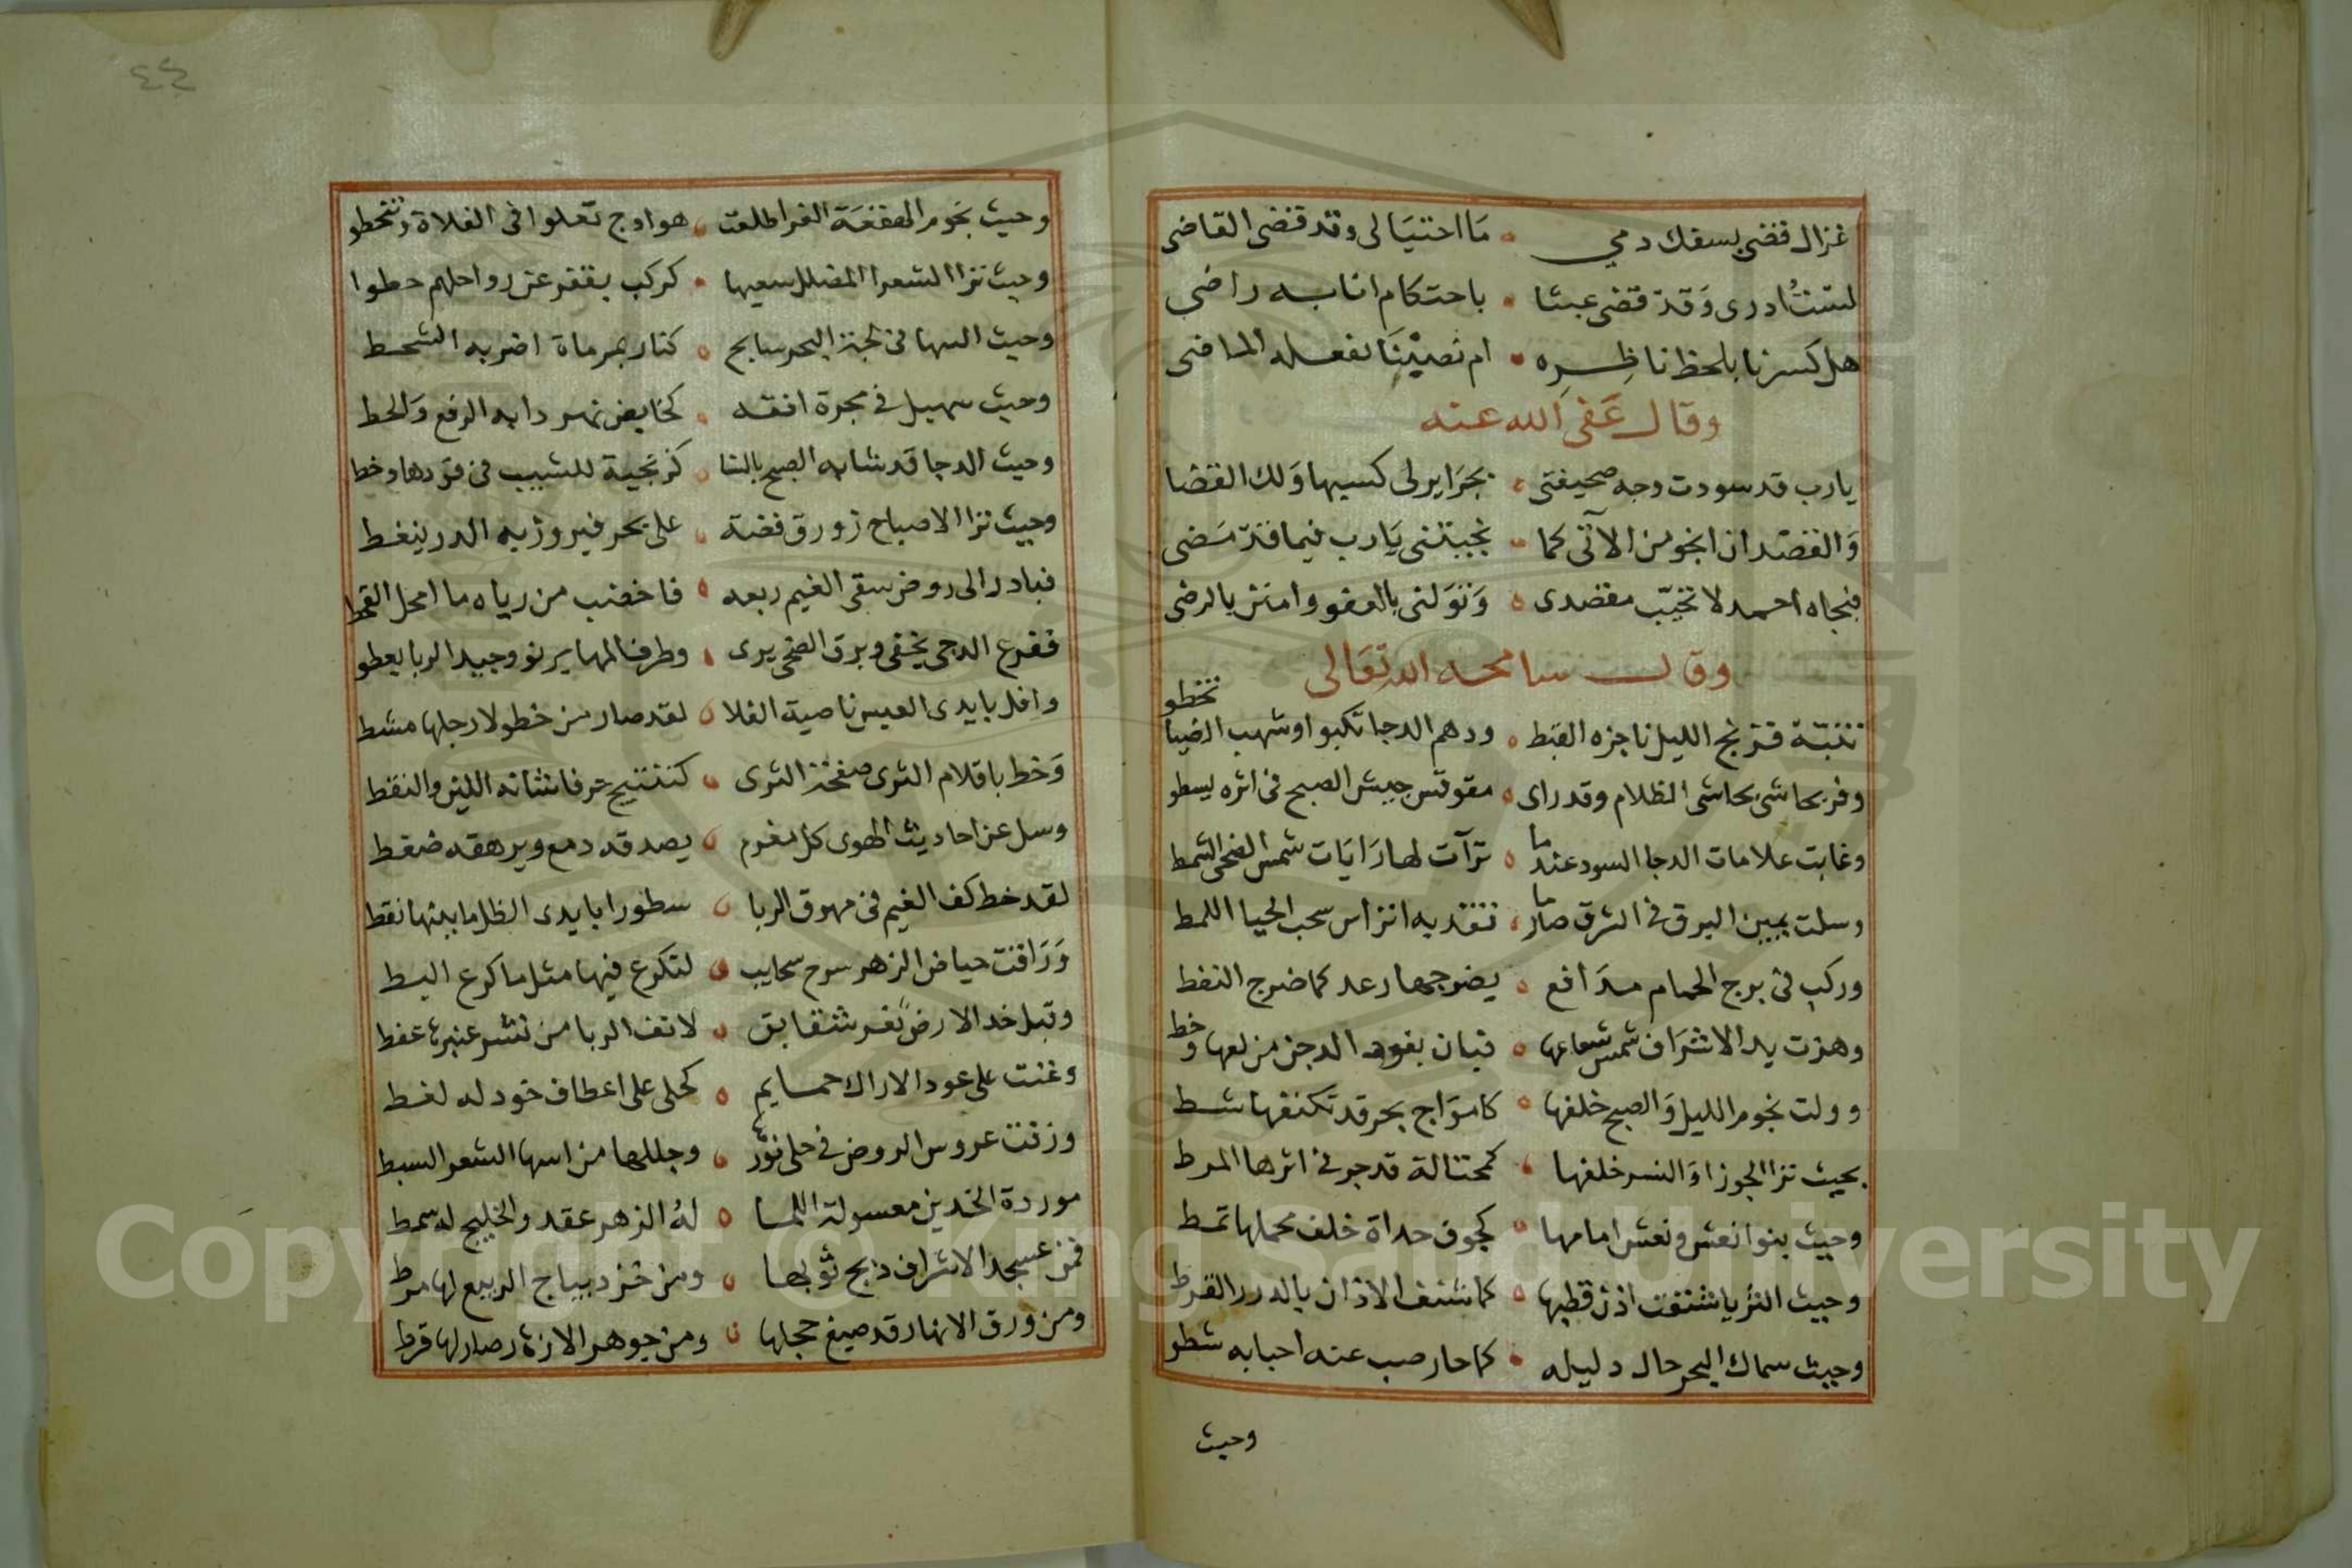 غزال قضى بسفك دمي ه ما احتيالى وقد قضى القاضى
لست ادرى وقد قضى عبثا ه باحتكام انا به راضى
هل كسرنا بلحظ ناظره ه ام نصبنا لفعله الماضى
وقال عفى الله عنه
يارب قد سودت وجه صحيفتى ه بجراير لى كسبها ولك القضا
والقصد ان انجو من الآتى كما ه نجيتنى يارب فيما قد مضى
فبجاه احمد لا تخيب مقصدى ه وتولنى بالعفو وامنن بالرضى
وقال سامحه الله تعالى
تنبه فزنج الليل ناجزه القبط ه ودهم الدجا تكبو اوشهب الضيا تخطو
وفر بحاشى بحاشى الظلام وقد راى ه مقوقس جيش الصبح فى اثره يسطو
وغابت علامات الدجا السود عندما ه ترآت لها رايات شمس الضحى الشمط
وسلت يمين البرق فى الشرق صارما ه تقد به اتراس سحب الحيا اللمط
وركب فى برج الحمام مدافع ه يضو جمها رعد كما ضرج النفط
وهزت يد الاشراف شمس شعاعها ه فبان بفود الدجن من لعها وخط
وولت نجوم الليل والصبح خلفها ه كامواج بحر قد تكنفها شط
بحيث ترا الجوزا والنسر خلفها ه كمحتالة قد جر فى اثرها المرط
وحيث بنوا نعش ونعش امامها ه كجوف حداة خلف محملها تمط
وحيث الثريا شنفت اذن قطبها ه كما شنف الاذان بالدرر القرط
وحيث سماك البحر حال دليله ه كما حار صب عنه احبابه شطو
وحيث
٤٤
وحيث نجوم الهقعة الغر اطلعت ه هوادج تعلوا فى الفلاة وتنحطو
وحيث ترا الشعرا المضلل سعيها ه كركب بقفر عن رواحلهم حطوا
وحيث السها فى لجة البحر سابح ه كنار بمرماة اضر به الشحط
وحيث سهيل فى مجرة افقه ه كخايض نهر دابه الرفع والحط
وحيث الدجا قد شابه الصبح بالسنا ه كزنجية للشيب فى فودها وخط
وحيث ترا الاصباح زورق فضة ه على بحر فيروز به الدر ينغط
فبادر الى روض سقى الغيم ربعه ه فاخضب من رياه ما امحل القحط
ففرع الدجى يخفى وبرق الضحى يرى ه وطرف المها يرنو وجيد الربا يعطو
وافل بايدى العيس ناصية الفلا ه لقد صار من خطو لارجلها مشط
وخط باقلام الثرى صفحة الثرى ه كتنتيج حرفا شانه اللين والنقط
وسل عن احاديث الهوى كل مغرم ه يصدقه دمع ويرهقه ضغط
لقد خط كف الغيم فى مهرق الربا ه سطورا بايدى الظل ما بينها نقط
ورافت حياض الزهر سرح سحايب ه لتكرع فيها مثل ما كرع البط
وقبل خد الارض ثغر شقايق ه لانف الربا من نشر عنبرها عفط
وغنت على عود الاراك حمايم ه كحلى على اعطاف خود له لغط
وزفت عروس الروض فى حلى نورها ه وجللها من اسها الشعر السبط
موردة الخدين معسولة اللما ه له الزهر عقد والخليج له سمط
فمن عسجد الاشراف دبج ثوبها ه ومن خز ديباج الربيع لها مرط
ومن ورق الانهار قد صيغ حجلها ه ومن جوهر الازهار صار لها قرط
Copyright © King Saud University